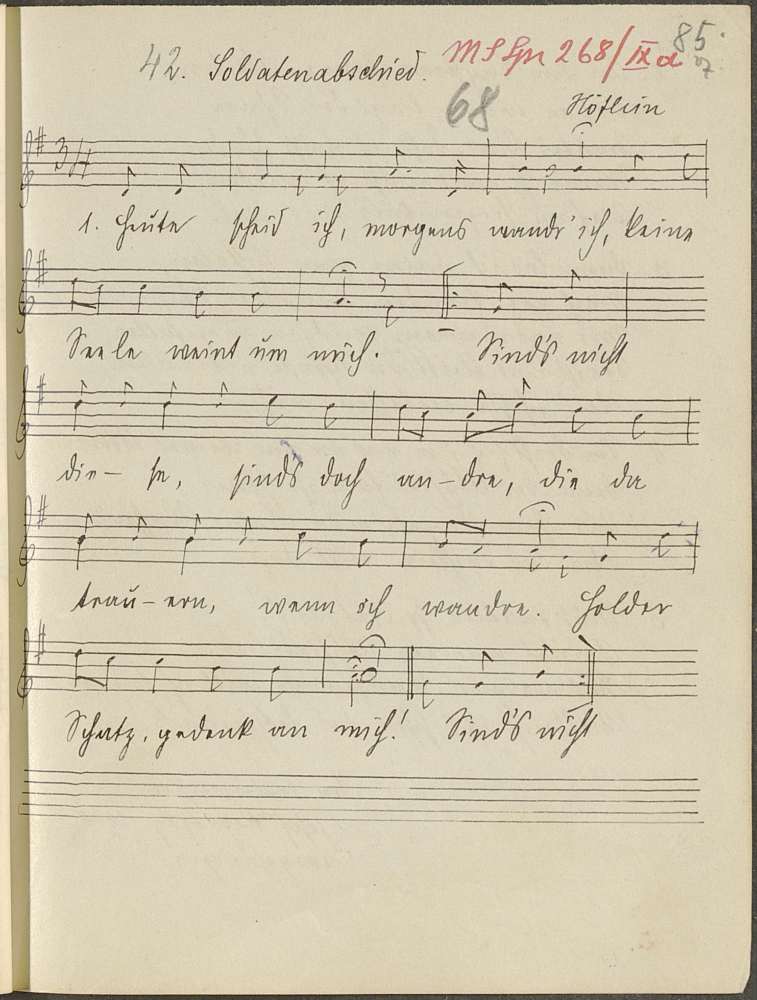 42. Soldatenabschied. MS Spr 268/IX a 85.
68 Höflein
3/4
1. Heute scheid ich, morgens wandr' ich, keine
Seele weint um mich. Sind's nicht
die– se, sind's doch an–dre, die da
trau–ern, wenn ich wandre. Holder
Schatz, gedenk an mich! Sind's nicht